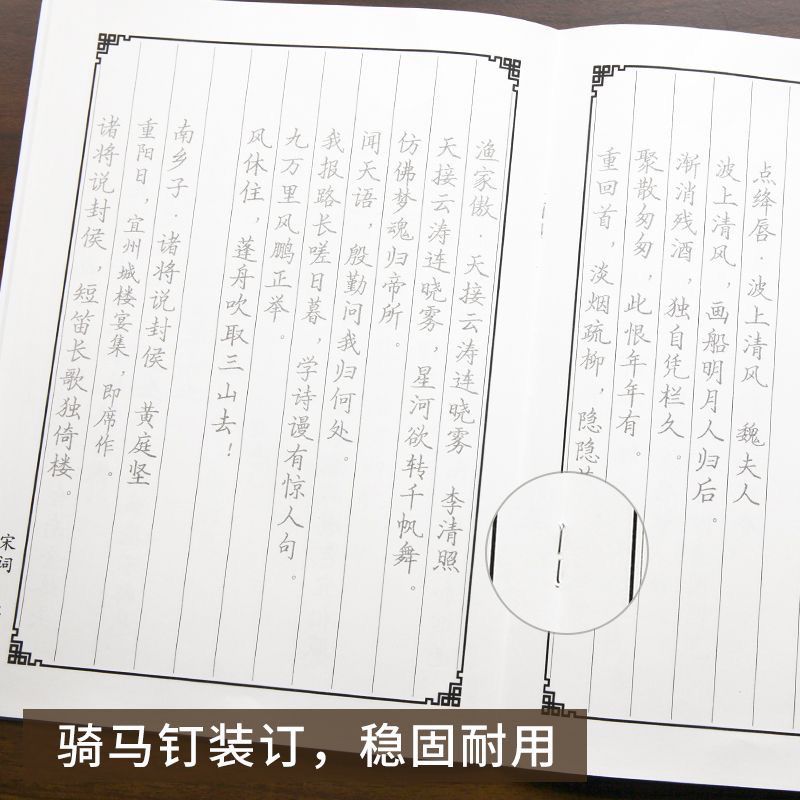 点绛唇·波上清风 魏夫人
波上清风，画船明月人归后。
渐消残酒，独自凭栏久。
聚散匆匆，此恨年年有。
重回首，淡烟疏柳，隐隐
渔家傲·天接云涛连晓雾 李清照
天接云涛连晓雾，星河欲转千帆舞。
仿佛梦魂归帝所。
闻天语，殷勤问我归何处。
我报路长嗟日暮，学诗谩有惊人句。
九万里风鹏正举。
风休住，蓬舟吹取三山去！
南乡子·诸将说封侯 黄庭坚
重阳日，宜州城楼宴集，即席作。
诸将说封侯，短笛长歌独倚楼。
宋词
骑马钉装订，稳固耐用